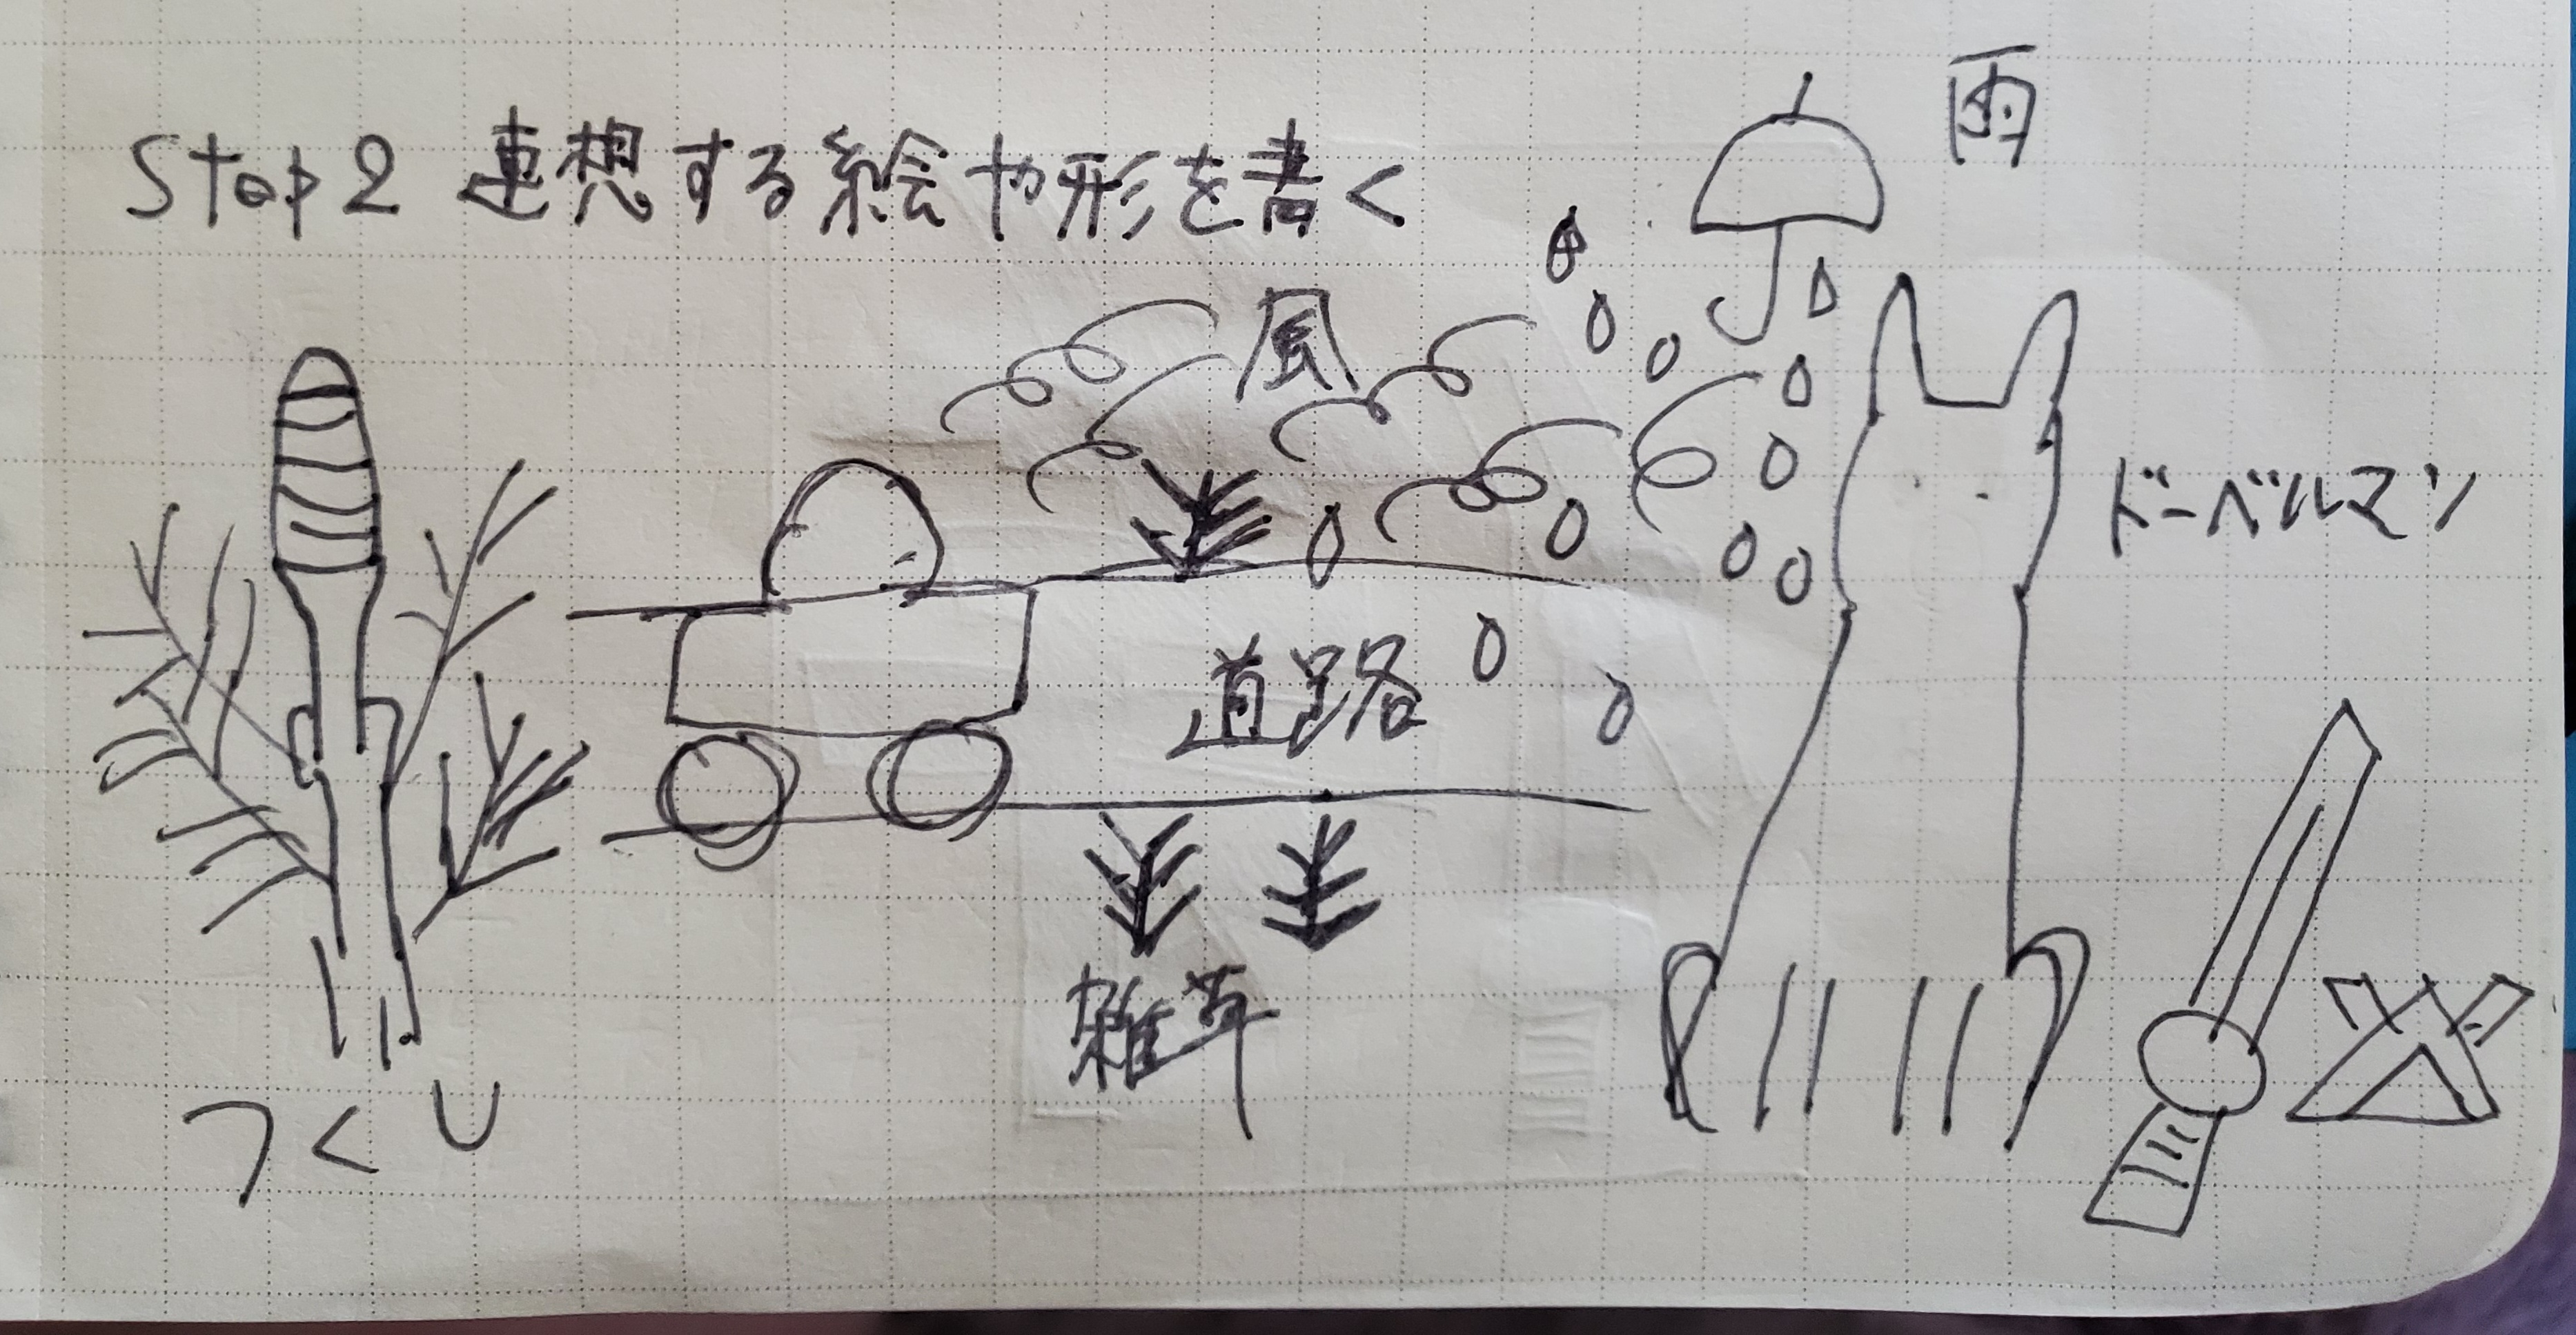 Step2 連想する絵や形を書く
雨
風
ドーベルマン
道路
雑草
つくし